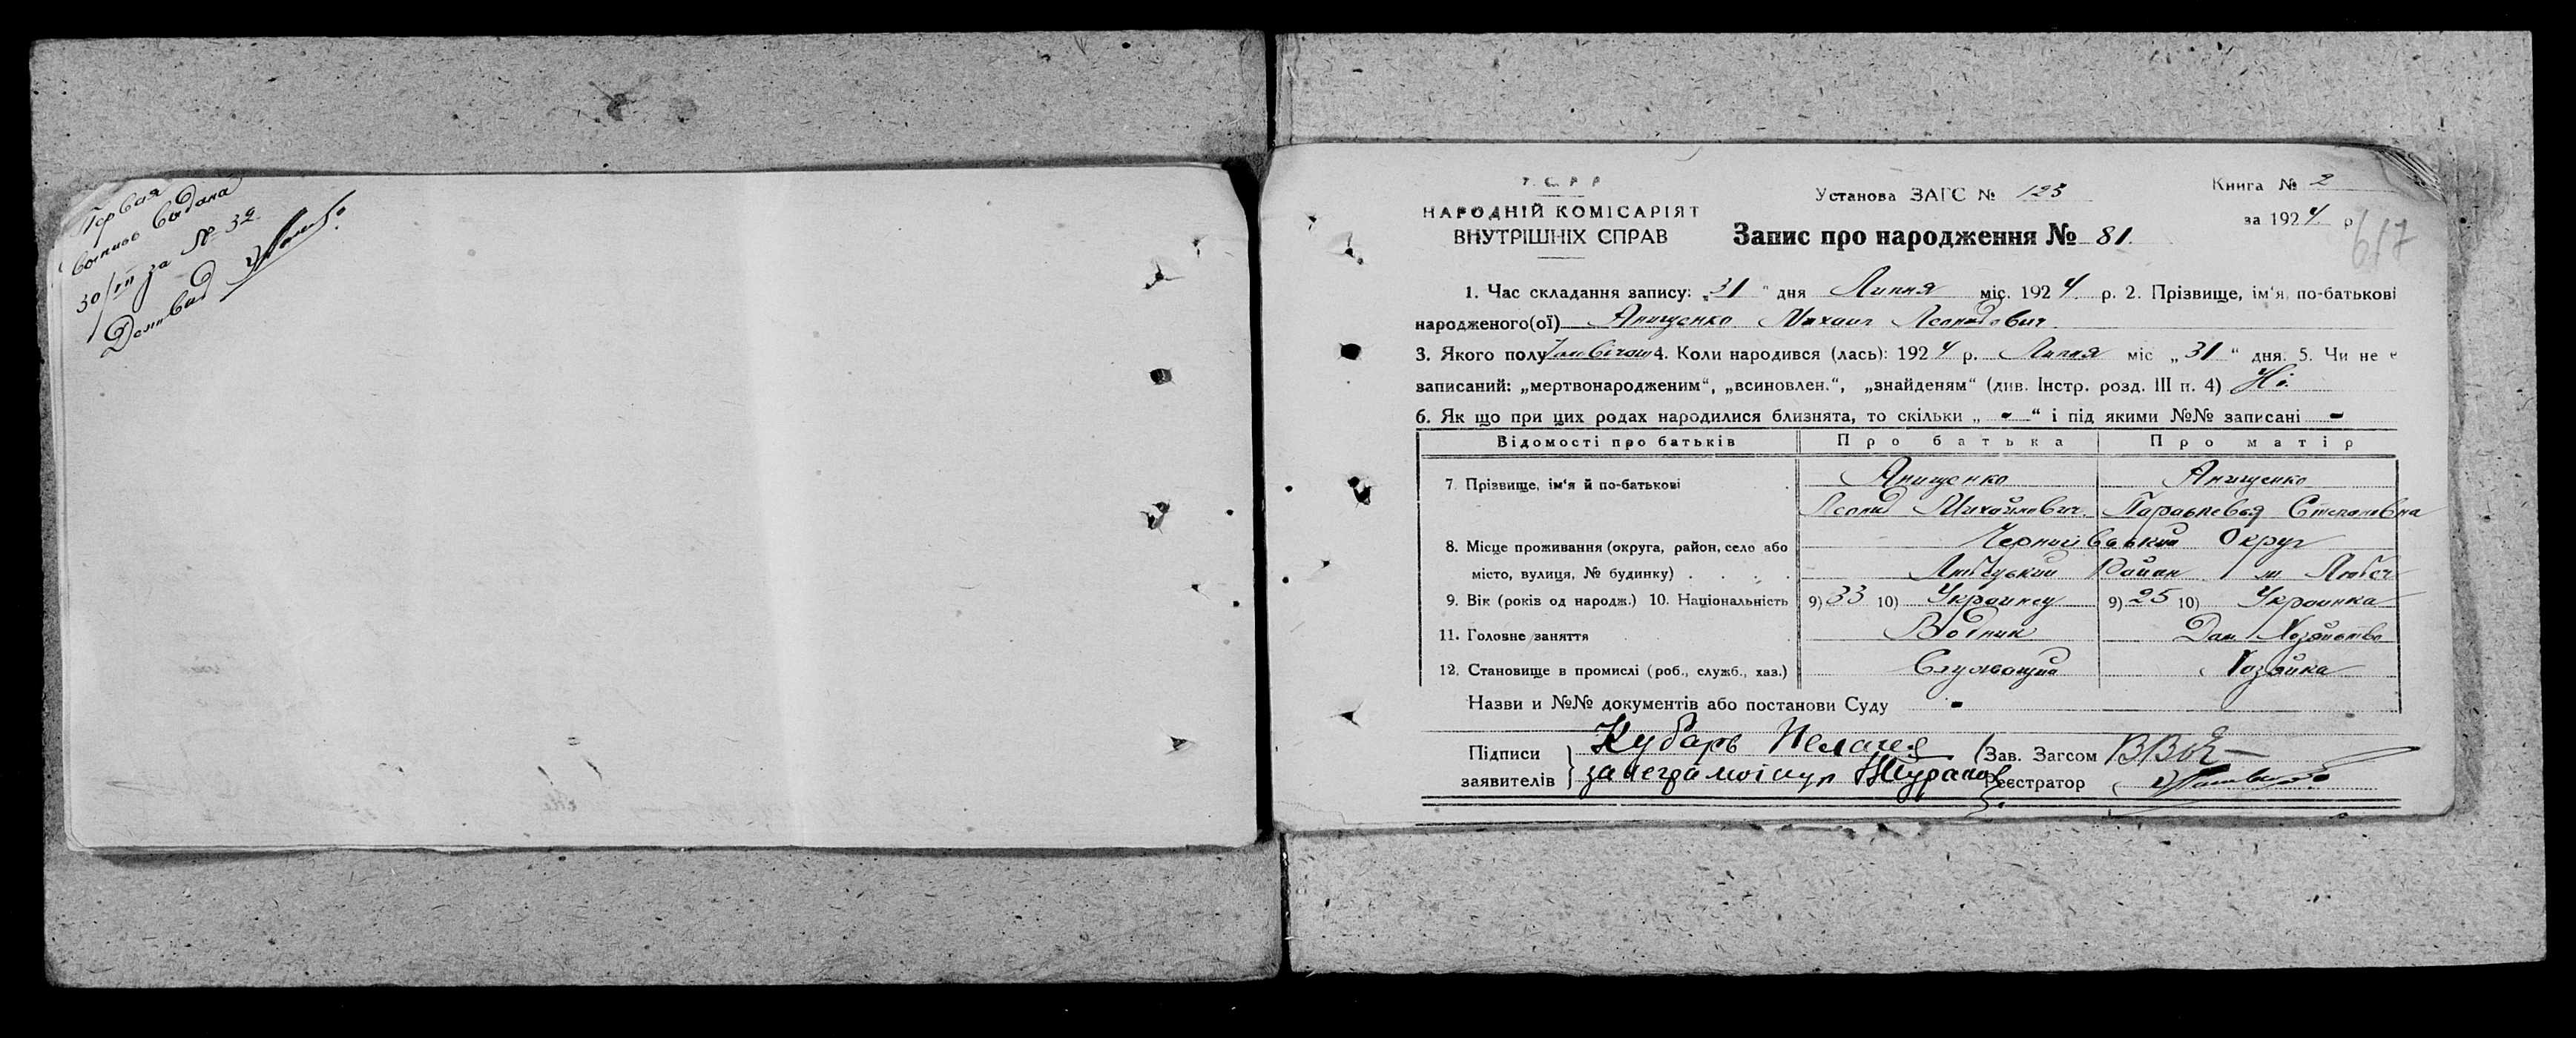 Первая
выпись выдана
30/III за № 32
Діловод
У. С. Р. Р.
НАРОДНІЙ КОМІСАРІЯТ
ВНУТРІШНІХ СПРАВ
Установа ЗАГС № 123
Запис про народження № 81.
Книга № 2
за 1924 р
617
1. Час складання запису: „31“ дня Липня міс. 1924 р. 2. Прізвище, ім‘я, по-батькові
народженого(ої) Анищенко Михаил Леонидович.
3. Якого полу 4. Коли народився (лась): 1924 р. Липня міс „31“ дня. 5. Чи не є
записаний: „мертвонародженим“, „всиновлен.“, „знайденям“ (див. Інстр. розд. III п. 4) Ні.
6. Як що при цих родах народилися близнята, то скільки „ - “ і під якими №№ записані -
Відомості про батьків Про батька Про матір
7. Прізвище, ім‘я й по-батькові
Анищенко Анищенко
Леонид Михайлович. Параскевья Степановна
8. Місце проживання (округа, район, село або Округ
місто, вулиця, № будинку) Район м Любеч
9. Вік (років од народж.) 10. Національність 9) 33 10) Украинец 9) 25 10) Украинка
11. Головне заняття Водник Дом Хозяйство
12. Становище в промислі (роб., служб., хаз.) Служащий Хозяйка
Назви и №№ документів або постанови Суду -
Підписи Кубарь Пелагея Зав. Загсом
заявителів за неграмотную Реєстратор